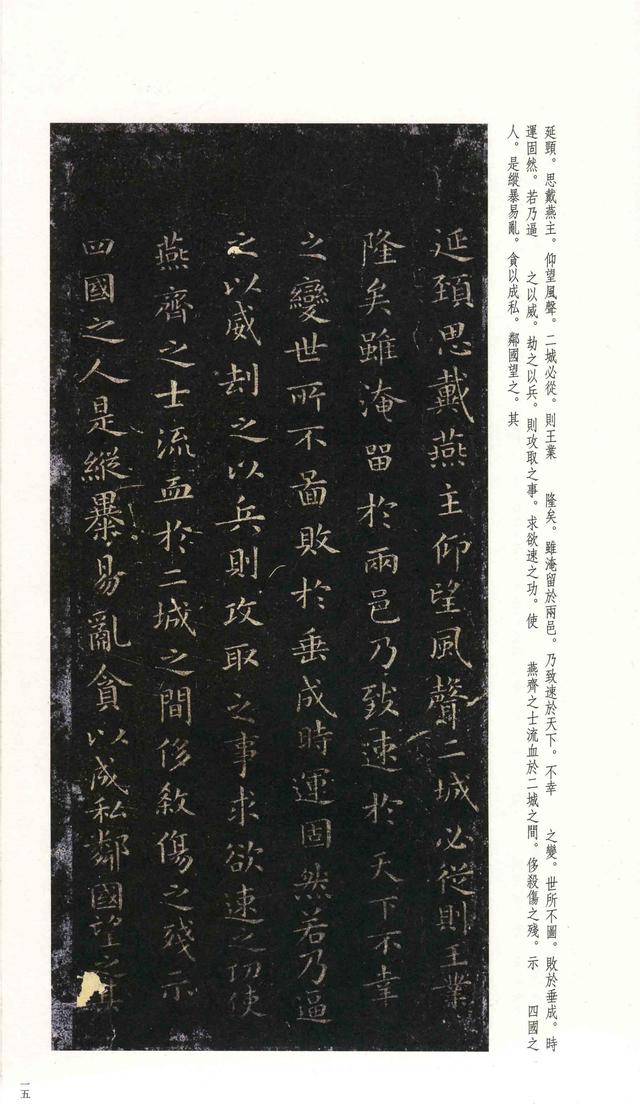 延頸。思戴燕主。仰望風聲。二城必從。則王業 隆矣。雖淹留於兩邑。乃致速於天下。不幸 之變。世所不圖。敗於垂成。時
運固然。若乃逼 之以威。劫之以兵。則攻取之事。求欲速之功。使 燕齊之士流血於二城之間。侈殺傷之殘。示 四國之
人。是縱暴易亂。貪以成私。鄰國望之。其
延頸思戴燕主仰望風聲二城必從則王業
隆矣雖淹留於兩邑乃致速於天下不幸
之變世所不圖敗於垂成時運固然若乃逼
之以威劫之以兵則攻取之事求欲速之功使
燕齊之士流血於二城之間侈殺傷之殘示
四國之人是縱暴易亂貪以成私鄰國望之其
一五